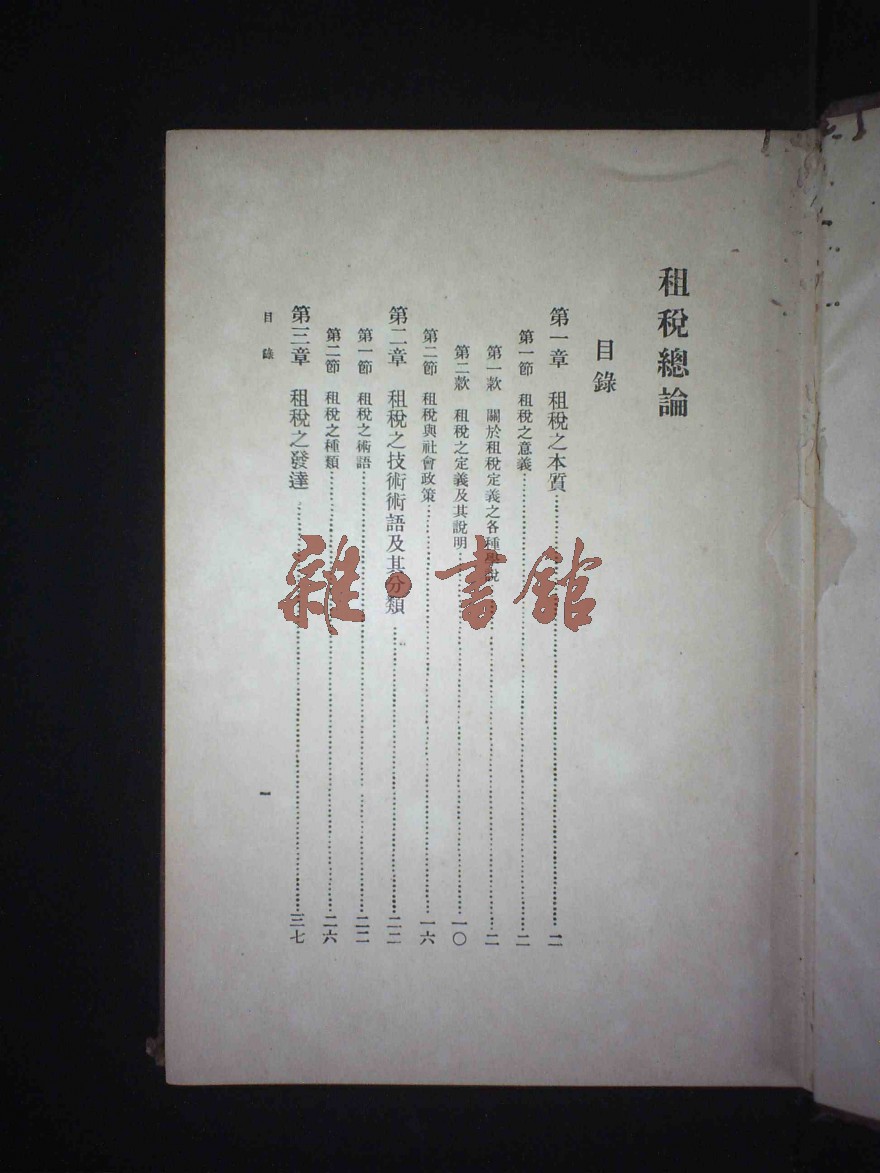 租稅總論
目錄
第一章　租稅之本質……二
第一節　租稅之意義……二
第一款　關於租稅定義之各種學說……二
第二款　租稅之定義及其說明……一〇
第二節　租稅與社會政策……一六
第二章　租稅之技術術語及其分類……二二
第一節　租稅之術語……二二
第二節　租稅之種類……二六
第三章　租稅之發達……三七
目錄
一
雜·書館